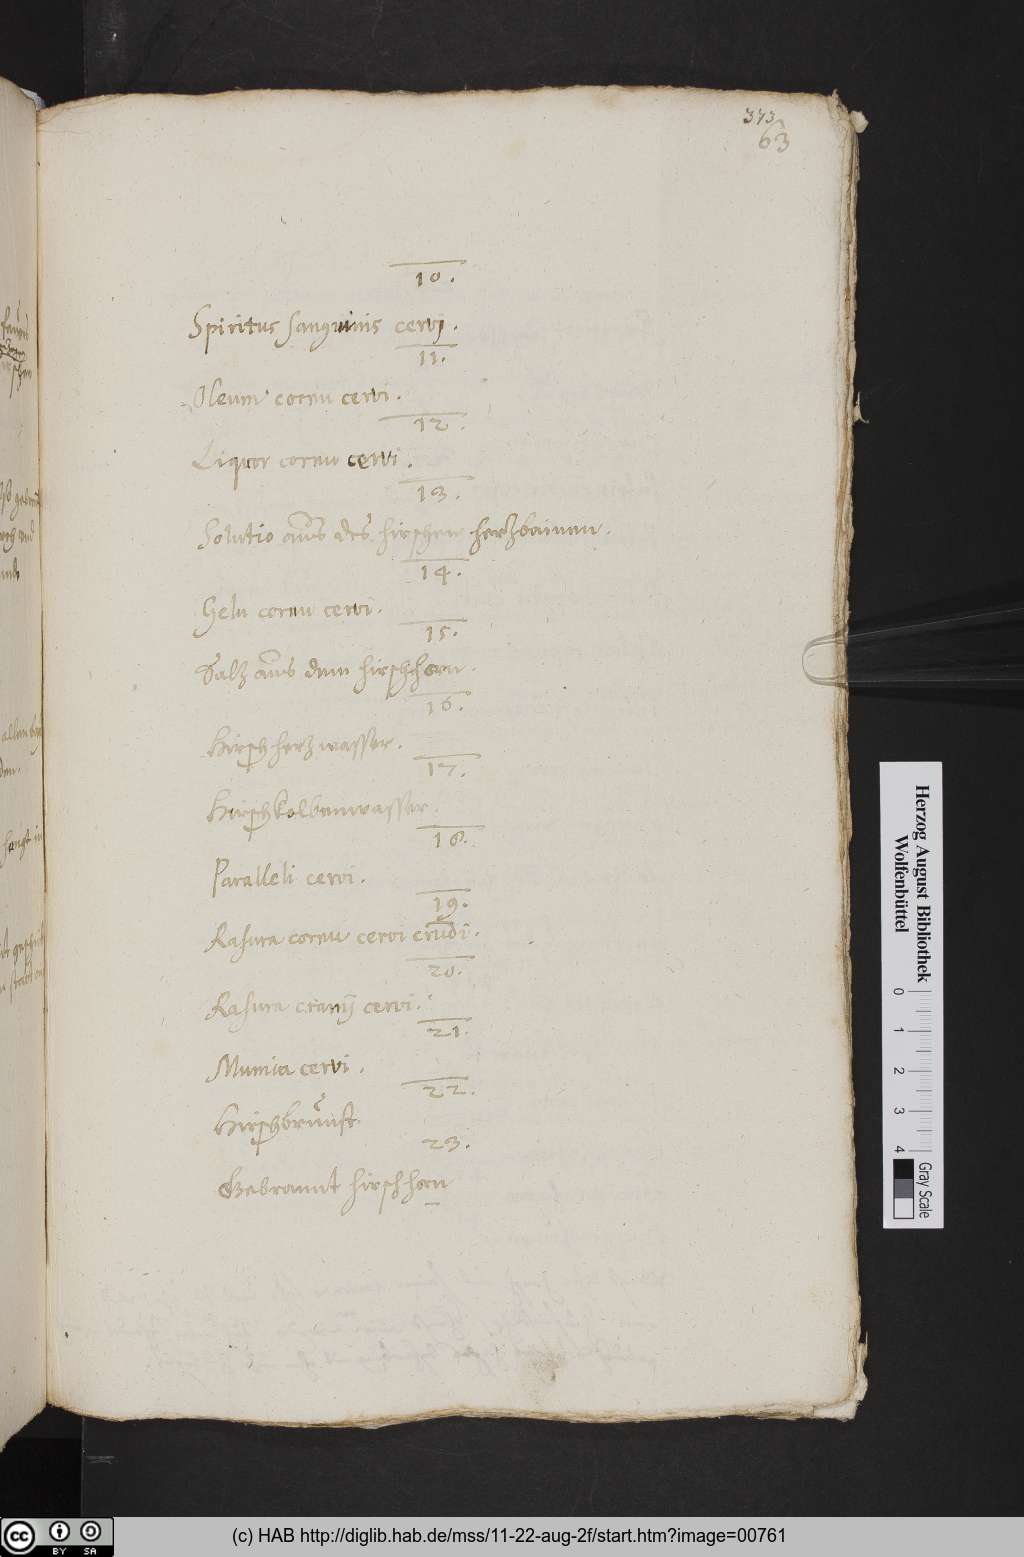 373
63
10.
Spiritus sanguinis cervi.
11.
Oleum cornu cervi.
12.
Liquor cornu cervi.
13.
Solutio aus des hirschen hertzbainen.
14.
Gelu cornu cervi.
15.
Saltz aus dem hirschhorn.
16.
Hirschhertzwasser.
17.
Hirschkolbenwasser.
18.
Paralleli cervi.
19.
Rasura cornu cervi crudi.
20.
Rasura cranij cervi.
21.
Mumia cervi.
22.
Hirschbrunst
23.
Gebrannt hirschhorn
Herzog August Bibliothek
Wolfenbüttel
0 1 2 3 4
Gray Scale
cc BY SA
(c) HAB http://diglib.hab.de/mss/11-22-aug-2f/start.htm?image=00761